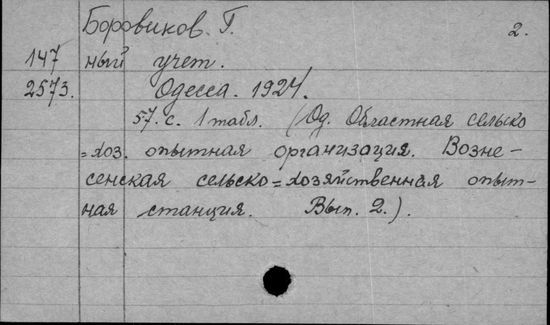 Боровиков. Г. 2.
147 ный учет.
2573. Одесса. 1927.
57. с. 1 табл. (Од. Областная сельско
=хоз. опытная организация. Возне-
сенская сельско=хозяйственная опыт-
ная станция. Вып. 2.).